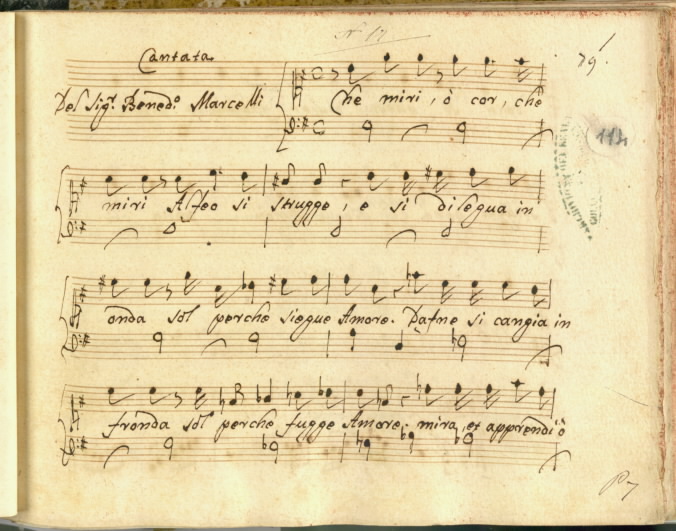 N. 17
Cantata
79.
Del Sig.r Bened.o Marcelli
Che miri, ò cor, che
113
miri Alfeo si strugge, e si dilegua in
onda sol perche siegue Amore. Dafne si cangia in
fronda sol perche fugge Amore; mira, et apprendi ò